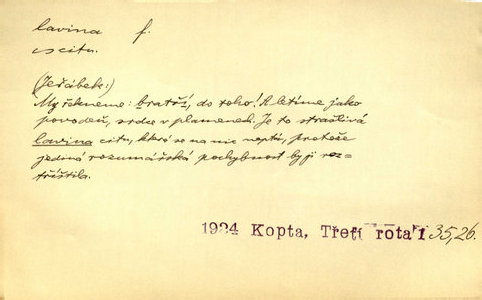 lavina f.
citu.
(Jeřábek:)
My řekneme: bratří, do toho! A letíme jako
povodeň, srdce v plamenech. Je to strašlivá
lavina citu, která se na nic neptá, protože
jediná rozumářská pochybnost by ji roz-
tříštila.
1924 Kopta, Třetí rota I 35,26.